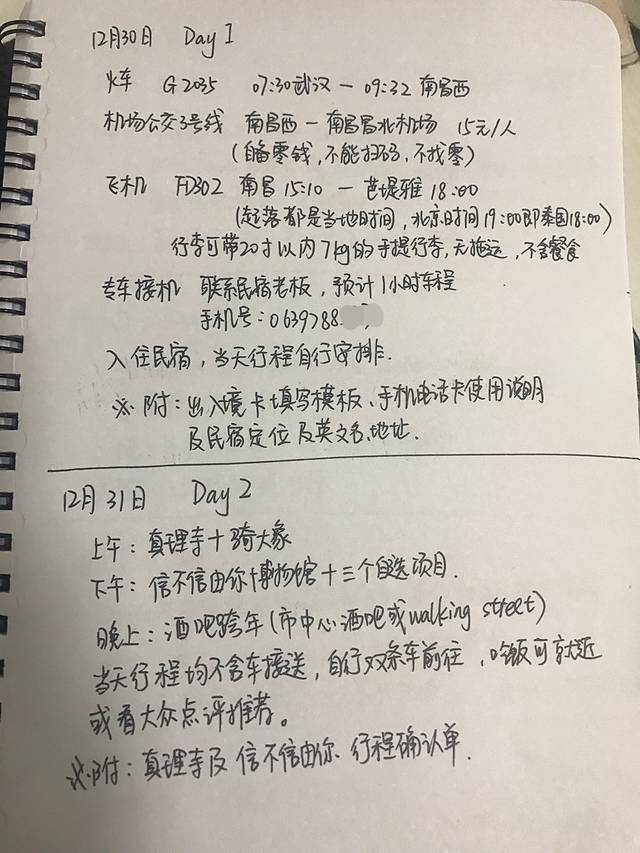 12月30日 Day 1
火车 G2035 07:30武汉 — 09:32 南昌西
机场公交3号线 南昌西 — 南昌昌北机场 15元/人
(自备零钱,不能扫码,不找零)
飞机 FD302 南昌 15:10 — 芭堤雅 18:00
(起落都是当地时间,北京时间19:00即泰国18:00)
行李可带20寸以内7kg的手提行李,无拖运,不含餐食
专车接机 联系民宿老板,预计1小时车程
手机号:0639788
入住民宿,当天行程自行安排.
※ 附:出入境卡填写模板、手机电话卡使用说明
及民宿定位及英文名、地址.
12月31日 Day 2
上午:真理寺+骑大象
下午:信不信由你博物馆+三个自选项目.
晚上:酒吧跨年(市中心酒吧或walking street)
当天行程均不含车接送,自行双条车前往,吃饭可就近
或看大众点评推荐。
※附:真理寺及信不信由你 行程确认单.